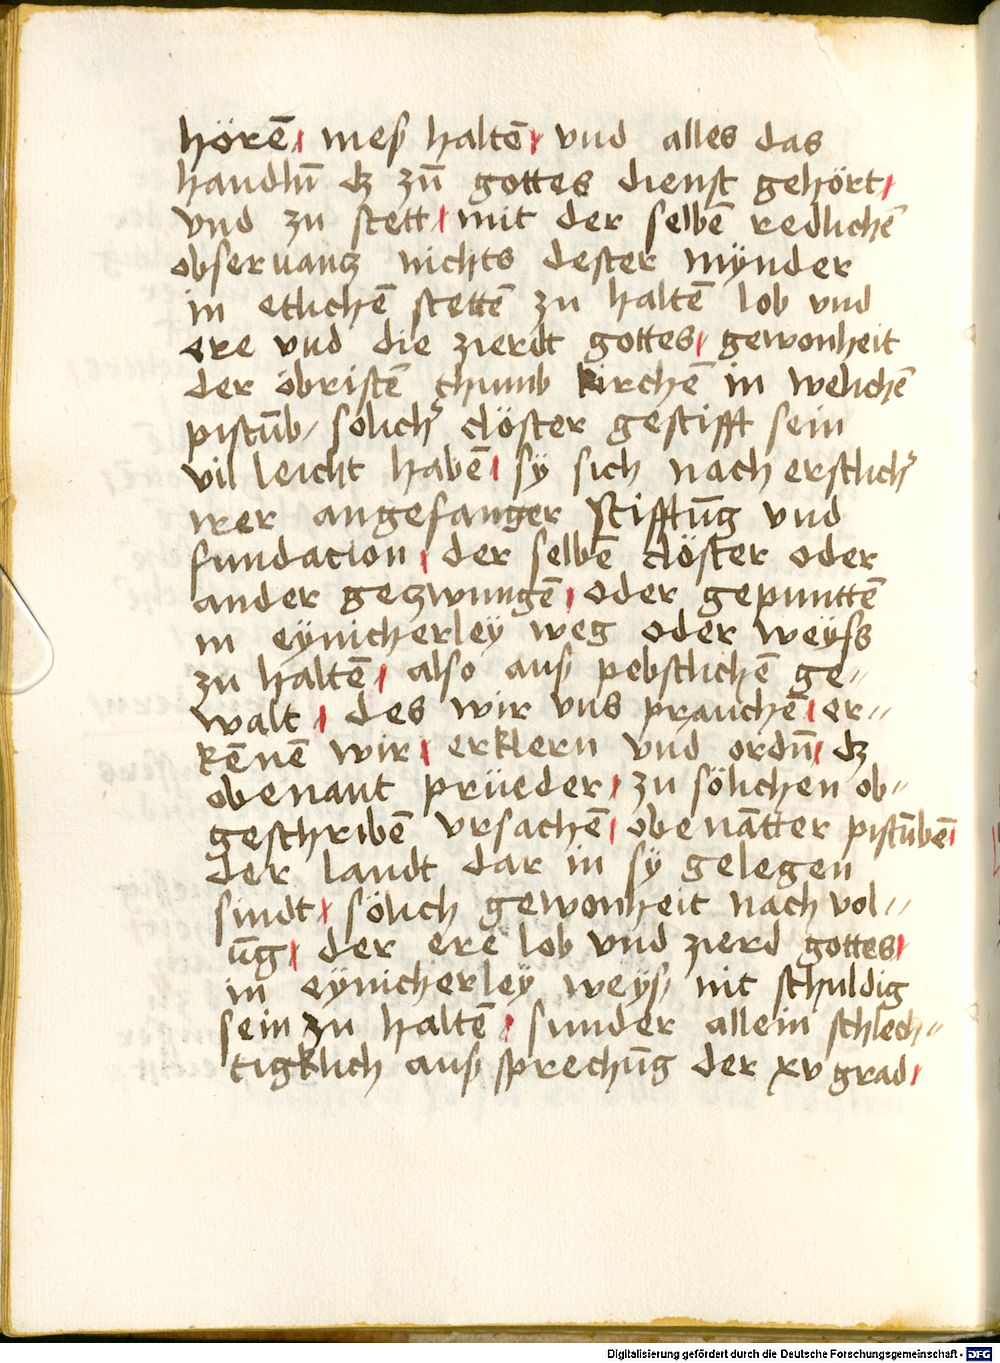 hörē / meſ haltē / vnd alles das
handlū dz zū gottes dienſt gehört /
vnd zu ſtett / mit der ſelbē redlichē
obſeruantz nichts deſter mÿnder
in etlichē ſtettē zu haltē lob vnd
ere vnd die zierdt gottes / gewonheit
der öbriſtē thumb kirchē in welichē
piſtūb / ſolich' clöſter geſtifft ſein
vil leicht habē / ſÿ ſich nach erſtlich'
irer angefanger ſtifftūg vnd
fundacion / der ſelbē clöſter oder
ander getzwungē / oder gepunttē
in eÿnicherleÿ weg oder weÿſs
zu haltē / alſo auſ pebſtlichē ge-"
walt / des wir vns prauchē / er-"
kēnē wir / erklern vnd ordn̄ / dz
obenant prüeder / zu ſölichen ob-"
geſchribē vrſachē / obenāttēr piſtūbē /
der landt dar in ſÿ gelegen
ſindt / ſölich gewonheit nach vol-"
ūg / der ere lob vnd zierd gottes /
in eÿnicherleÿ weÿſ nit ſchuldig
ſein zu haltē / ſunder allein ſchlech-"
tigklich auſ ſprechūg der xv grad /
Digitalisierung gefördert durch die Deutsche Forschungsgemeinschaft - DFG